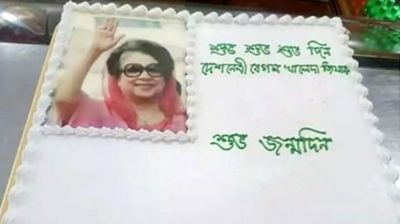 শুভ শুভ শুভ দিন
দেশনেত্রী বেগম খালেদা জিয়ার
শুভ জন্মদিন